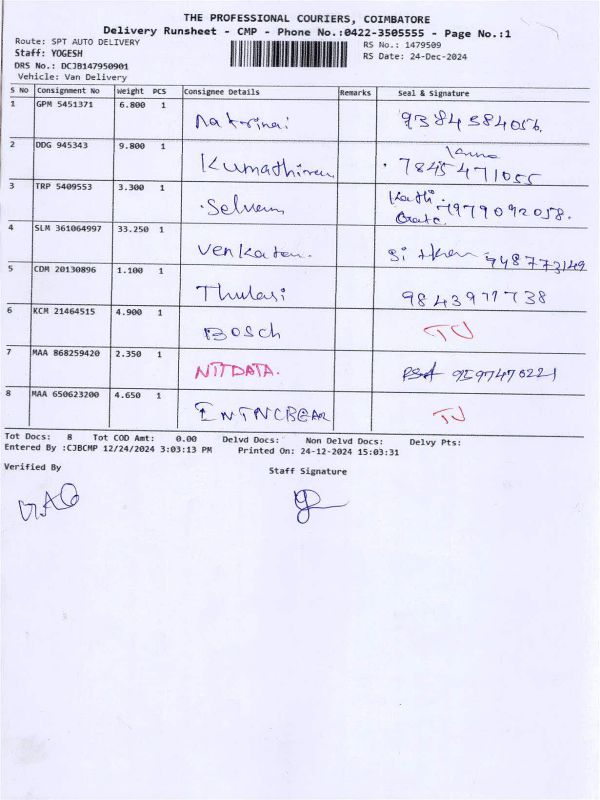 THE PROFESSIONAL COURIERS, COIMBATORE
Delivery Runsheet - CMP - Phone No.:0422-3505555 - Page No.:1
Route: SPT AUTO DELIVERY
RS No.: 1479509
Staff: YOGESH
RS Date: 24-Dec-2024
DRS No.: DCJB147950901
Vehicle: Van Delivery
S No Consignment No Weight PCS Consignee Details Remarks Seal & Signature
1 GPM 5451371 6.800 1
9384584056
2 DDG 945343 9.800 1 Kumathiran
7845471055
3 TRP 5409553 3.300 1 Selvam
7979092058.
4 SLM 361064997 33.250 1 Venkaten.
9487773149
5 CDM 20130896 1.100 1 Thulasi 9843977738
6 KCM 21464515 4.900 1 BOSCH TJ
7 MAA 868259420 2.350 1 NTTDATA. 9597470221
8 MAA 650623200 4.650 1 INTNCBEAR TJ
Tot Docs: 8 Tot COD Amt: 0.00 Delvd Docs: Non Delvd Docs: Delvy Pts:
Entered By :CJBCMP 12/24/2024 3:03:13 PM Printed On: 24-12-2024 15:03:31
Verified By
Staff Signature